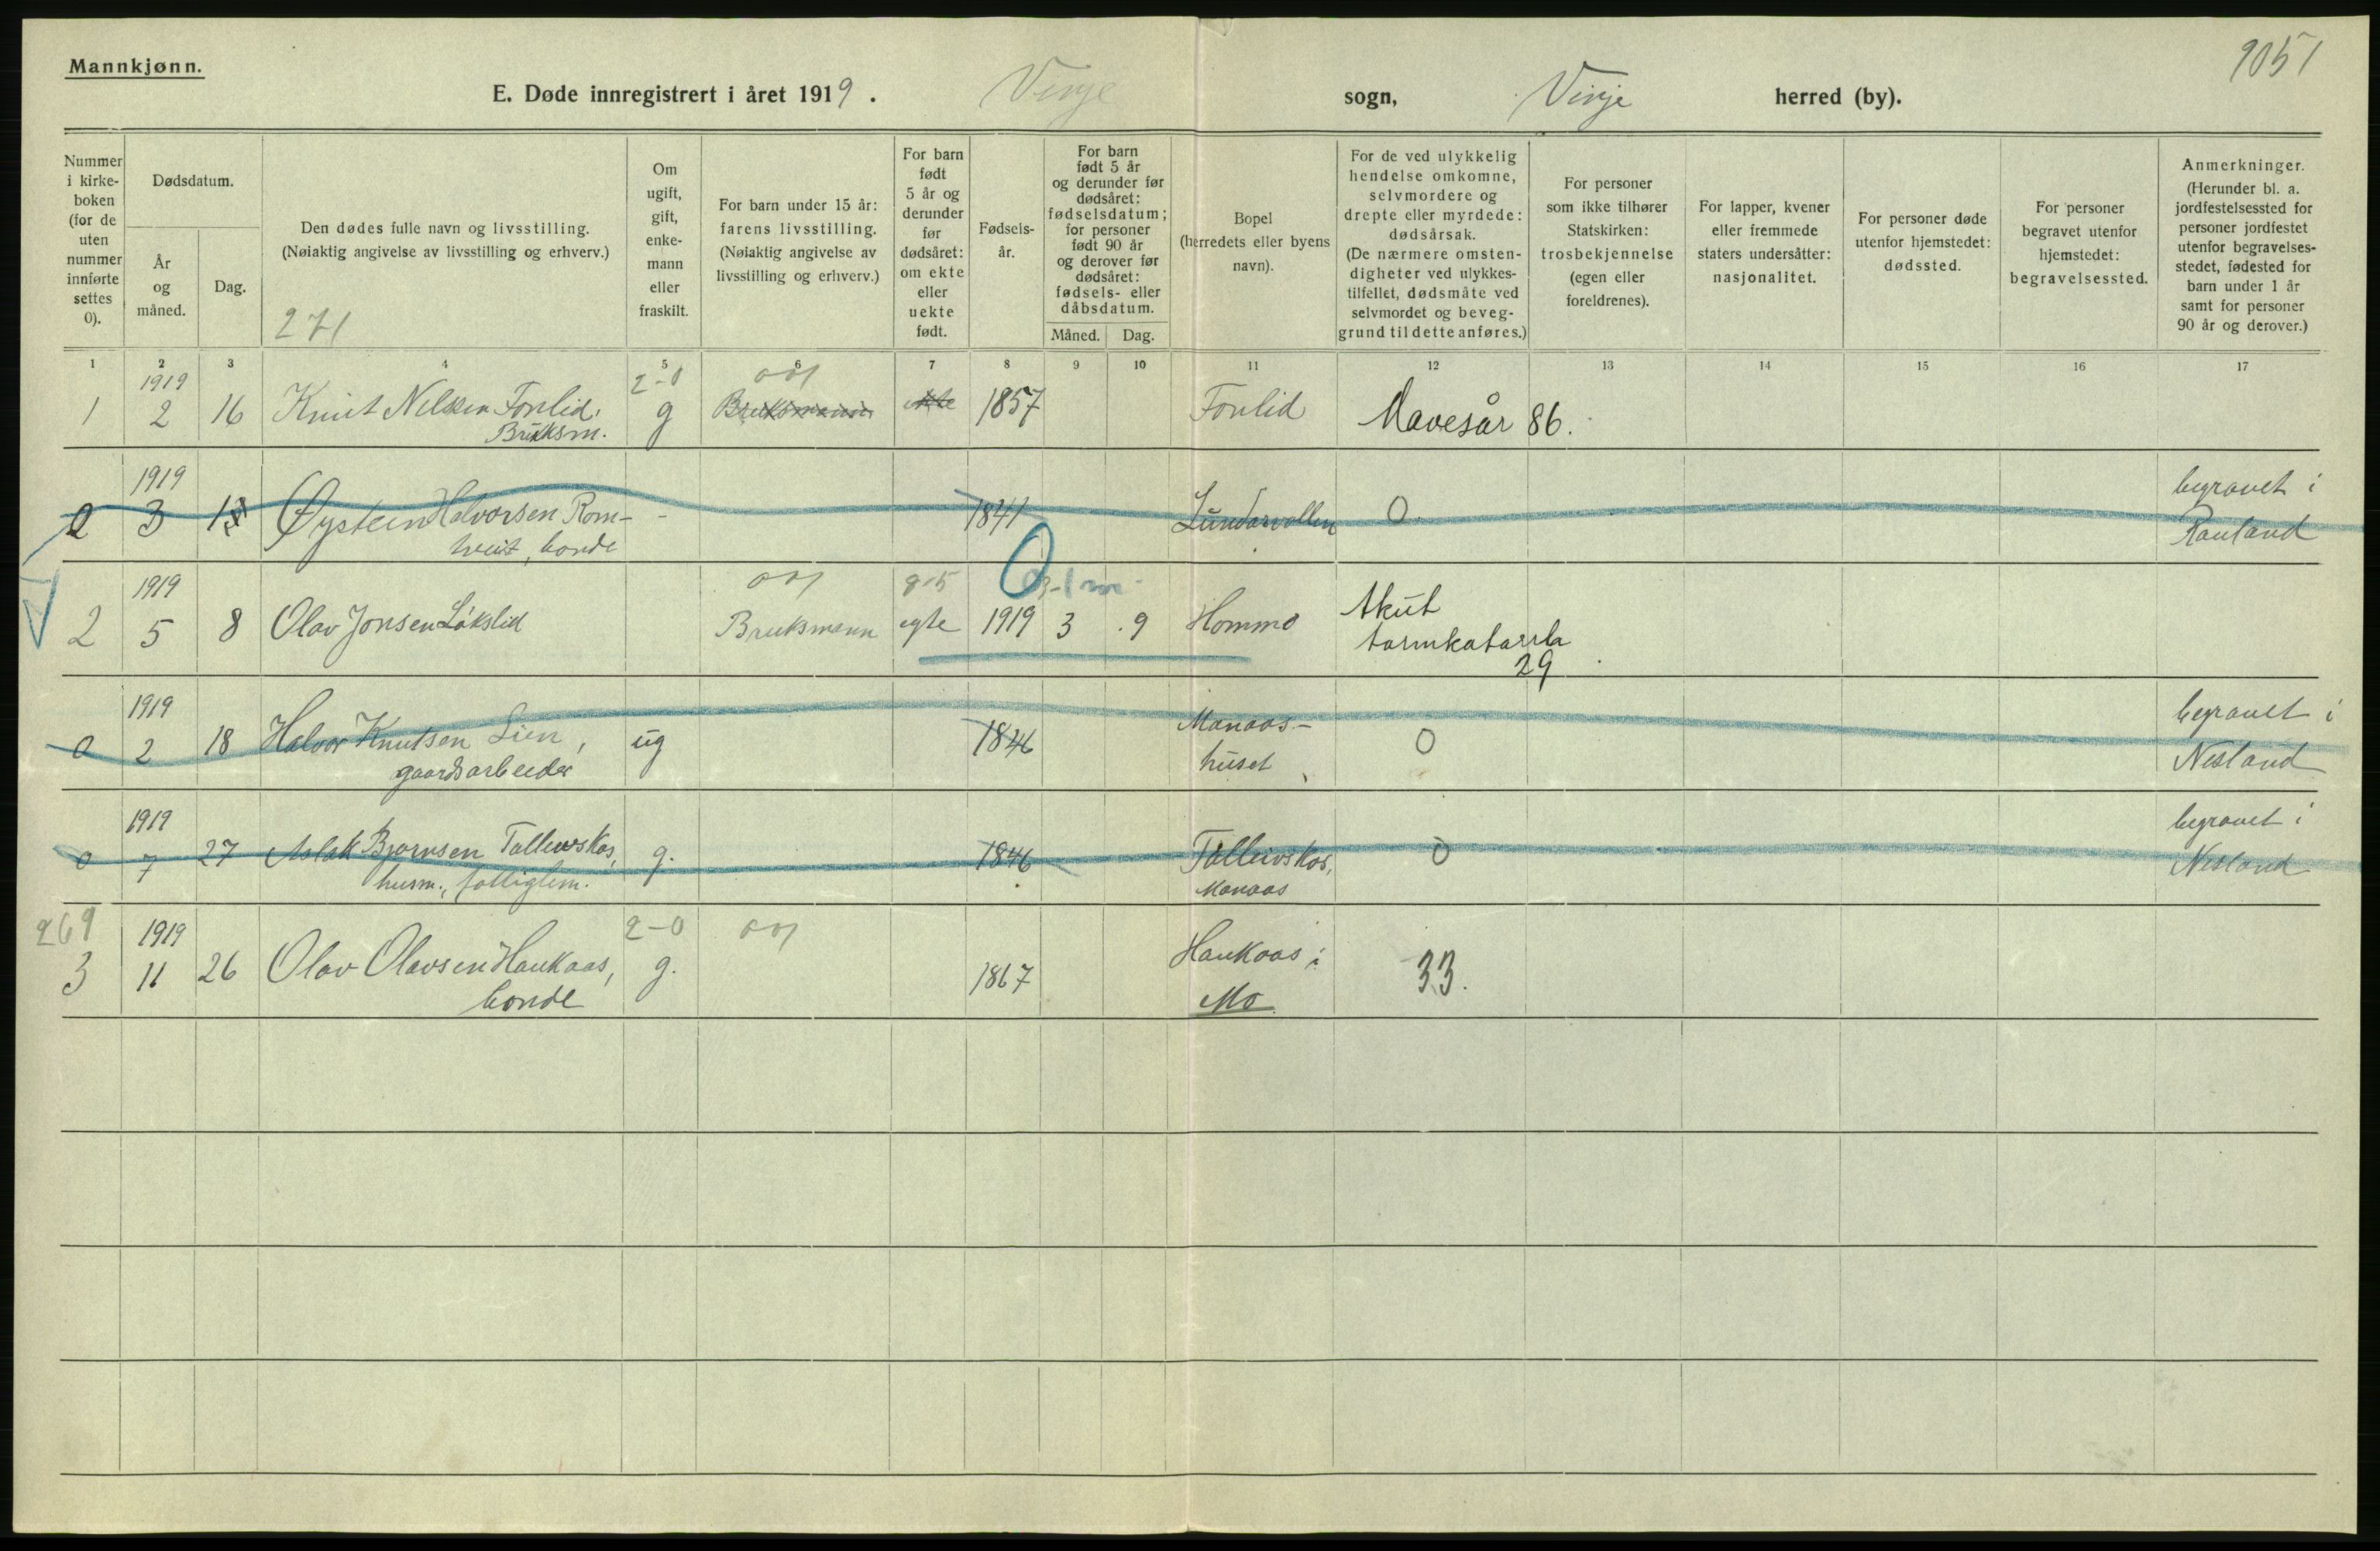 Mannkjønn.
9051
E. Døde innregistrert i året 1919. Vinje sogn, Vinje herred (by).
Nummer i kirke-boken (for de uten nummer innførte settes 0).
Dødsdatum.
År og måned.
Dag.
Den dødes fulle navn og livsstilling.
(Nøiaktig angivelse av livsstilling og erhverv.)
271
Om ugift, gift, enke-mann eller fraskilt.
For barn under 15 år: farens livsstilling.
(Nøiaktig angivelse av livsstilling og erhverv.)
For barn født 5 år og derunder før dødsåret: om ekte eller uekte født.
Fødsels-år.
For barn født 5 år og derunder før dødsåret: fødselsdatum; for personer født 90 år og derover før dødsåret: fødsels- eller dåbsdatum.
Måned. Dag.
Bopel (herredets eller byens navn).
For de ved ulykkelig hendelse omkomne, selvmordere og drepte eller myrdede: dødsårsak.
(De nærmere omsten-digheter ved ulykkes-tilfellet, dødsmåte ved selvmordet og beveg-grund til dette anføres.)
For personer som ikke tilhører Statskirken: trosbekjennelse (egen eller foreldrenes).
For lapper, kvener eller fremmede staters undersåtter: nasjonalitet.
For personer døde utenfor hjemstedet: dødssted.
For personer begravet utenfor hjemstedet: begravelsessted.
Anmerkninger.
(Herunder bl. a. jordfestelsessted for personer jordfestet utenfor begravelses-stedet, fødested for barn under 1 år samt for personer 90 år og derover.)
1 2 3 4 5 6 7 8 9 10 11 12 13 14 15 16 17
1919 2-0
1 2 16 Knut Nilsen Fonlid. g Bruksmann ekte 1857 Fonlid Mavesår 86.
Bruksm.
1919 begravet i
0 3 Øystein Halvorsen Rom- - 1841 Lundarvollen 0. Rauland
tveit, bonde
1919 Akut
2 5 8 Olav Jonsen Løkslid Bruksmann egte 1919 3 9 Hommo tarmkatarrh
29
1919 Manaas- begravet i
0 2 18 Halvor Knutsen Lien, ug 1846 huset 0 Nesland
gaardsarbeider
1919 begravet i
0 7 27 Aslak Bjørnsen Talleivskas, g. 1846 Talleivskas, 0 Nesland
husm., fattiglem. Manaas
269 1919 2-0
3 11 26 Olav Olavsen Haukaas, g. 1867 Haukaas i 33.
bonde Mo